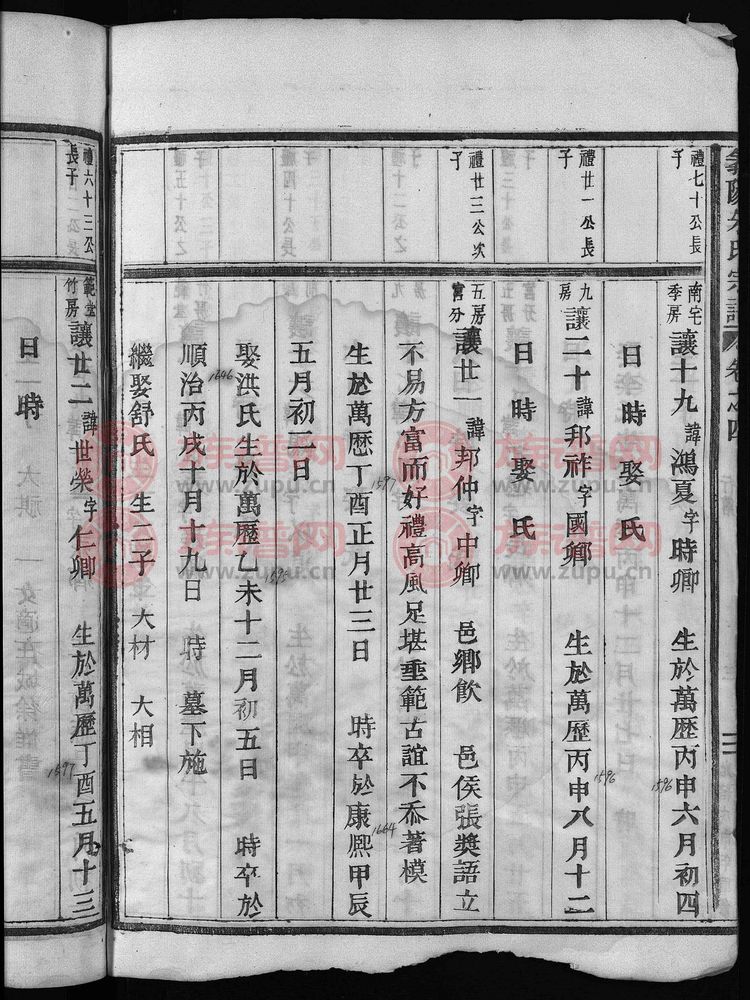 義陽朱氏宗譜 卷之四
禮七十公長子
南宅季房 讓十九 諱鴻夏字時卿 生於萬歷丙申六月初四
1596
日 時 娶 氏
禮廿一公長子
九房 讓二十 諱邦祚字國卿 生於萬歷丙申八月十二
1596
日 時 娶 氏
禮廿三公次子
五房富分 讓廿一 諱邦仲字中卿 邑鄉飲 邑侯張獎語立
不易方富而好禮高風足堪垂範古誼不忝著模
1664
生於萬歷丁酉正月廿三日 時卒於康熙甲辰
1597
五月初二日
娶洪氏生於萬歷乙未十二月初五日 時卒於
1595
順治丙戌十月十九日 時 墓下施
1646
繼娶舒氏 生二子 大材 大相
禮六十三公長子
範堂竹房 讓廿二 諱世榮字仁卿 生於萬歷丁酉五月十三
1597
日 時
族譜网
www.zupu.cn
族譜网
www.zupu.cn
族譜网
www.zupu.cn
族譜网
www.zupu.cn